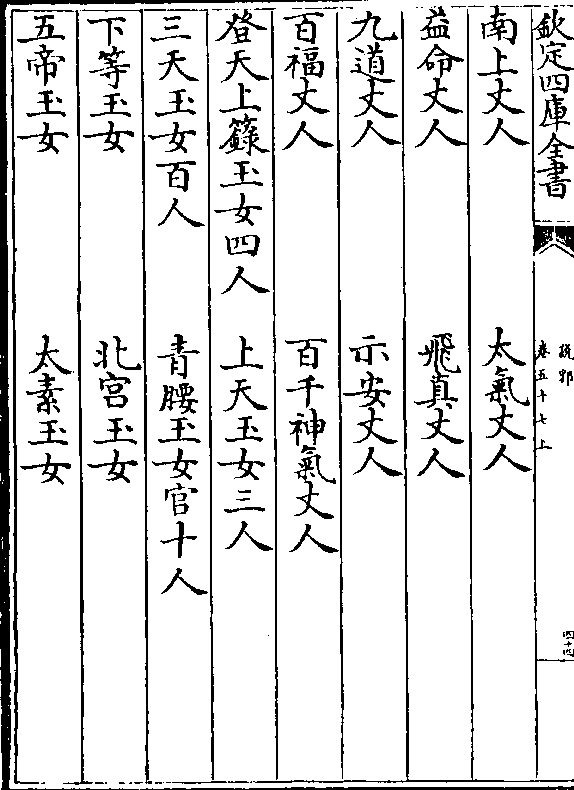 欽定四庫全書
説郛
卷五十七上
四十四
南上丈人　太氣丈人
益命丈人　飛真丈人
九道丈人　示安丈人
百福丈人　百千神氣丈人
登天上籙玉女四人　上天玉女三人
三天玉女百人　青腰玉女官十人
下等玉女　北宮玉女
五帝玉女　太素玉女